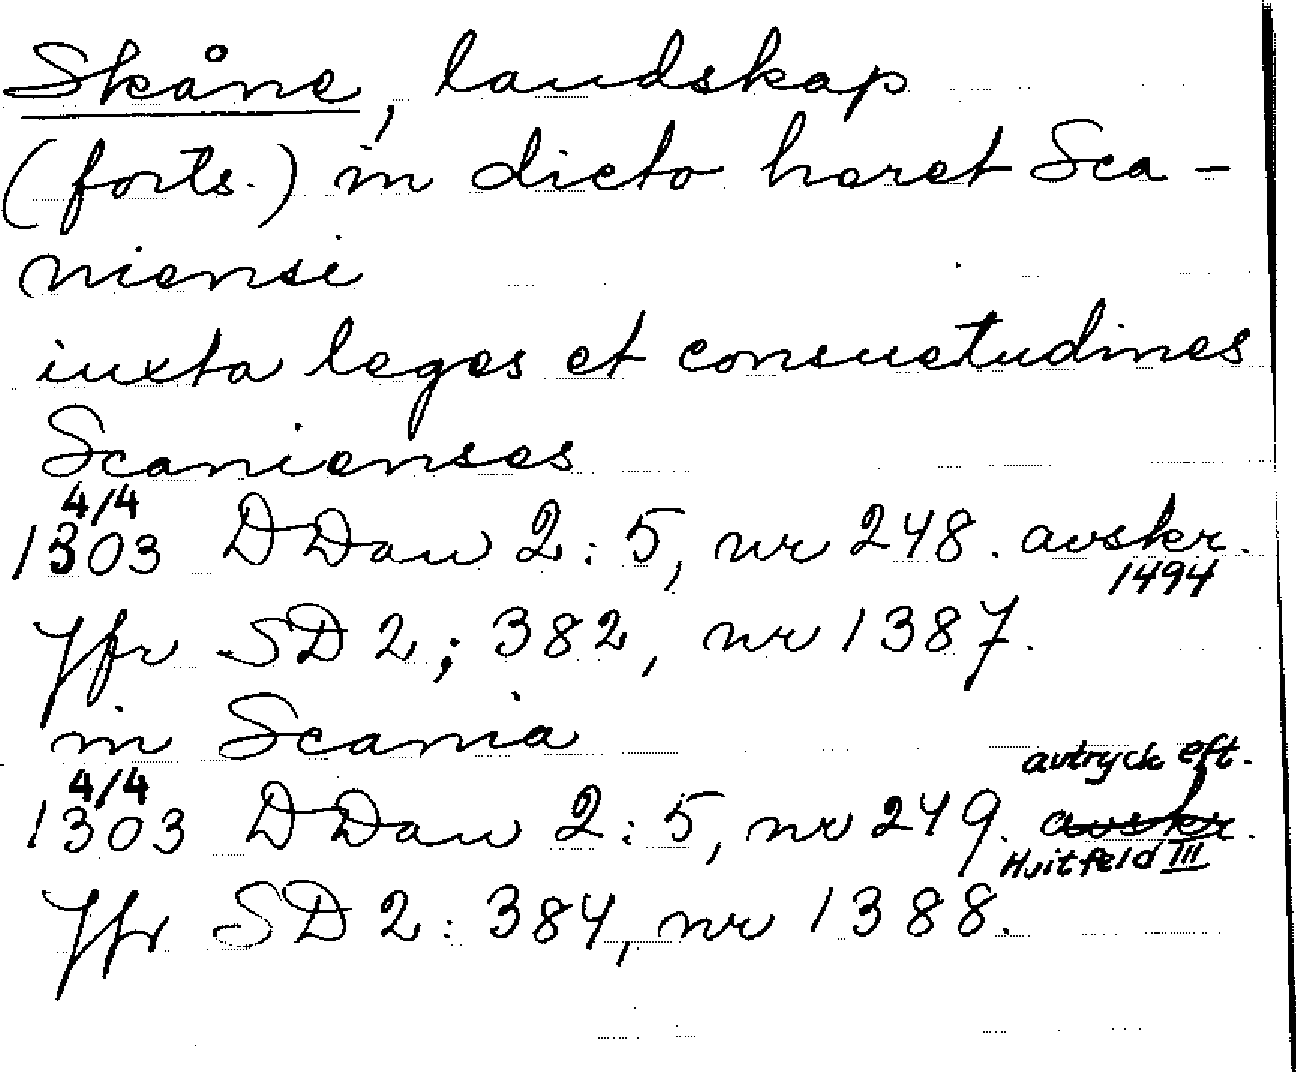 Skåne, landskap
(forts.) in dicto haret Sca-
niensi
iuxta leges et consuetudines
Scanienses
4/4
1303 DDan 2:5, nr 248. avskr.
1494
Jfr SD 2; 382, nr 1387.
in Scania
avtryck eft.
4/4
1303 DDan 2:5, nr 249. avskr.
Huitfeld III
Jfr SD 2: 384, nr 1388.